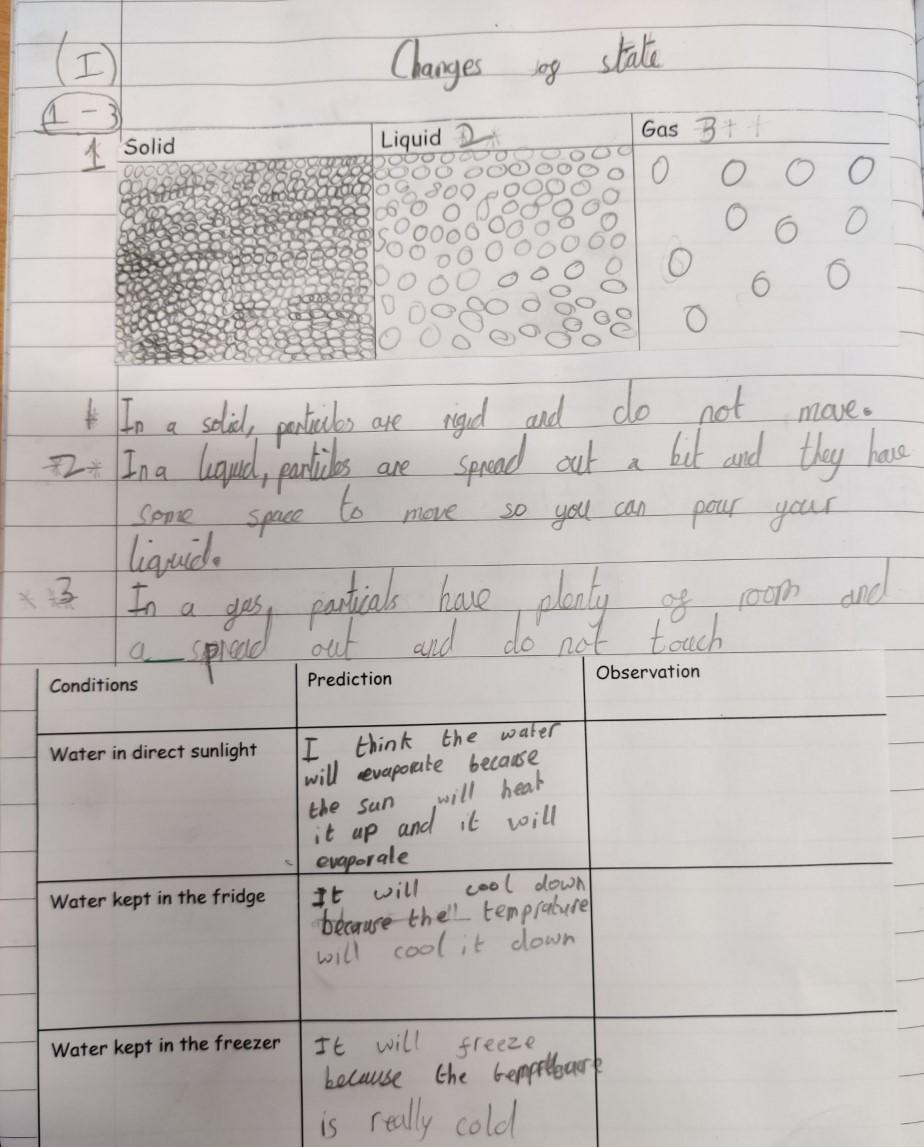 (I)
Changes of state
1 - 3
1 Solid
Liquid 2
Gas 3
1 In a solid, particles are rigid and do not move.
*2* In a liquid, particles are spread out a bit and they have
some space to move so you can pour your
liquid.
* 3 In a gas, particals have plenty of room and
a spread out and do not touch
Conditions
Prediction
Observation
Water in direct sunlight
I think the water
will evaporate because
the sun will heat
it up and it will
evaporate
Water kept in the fridge
It will cool down
because the temprature
will cool it down
Water kept in the freezer
It will freeze
because the
is really cold